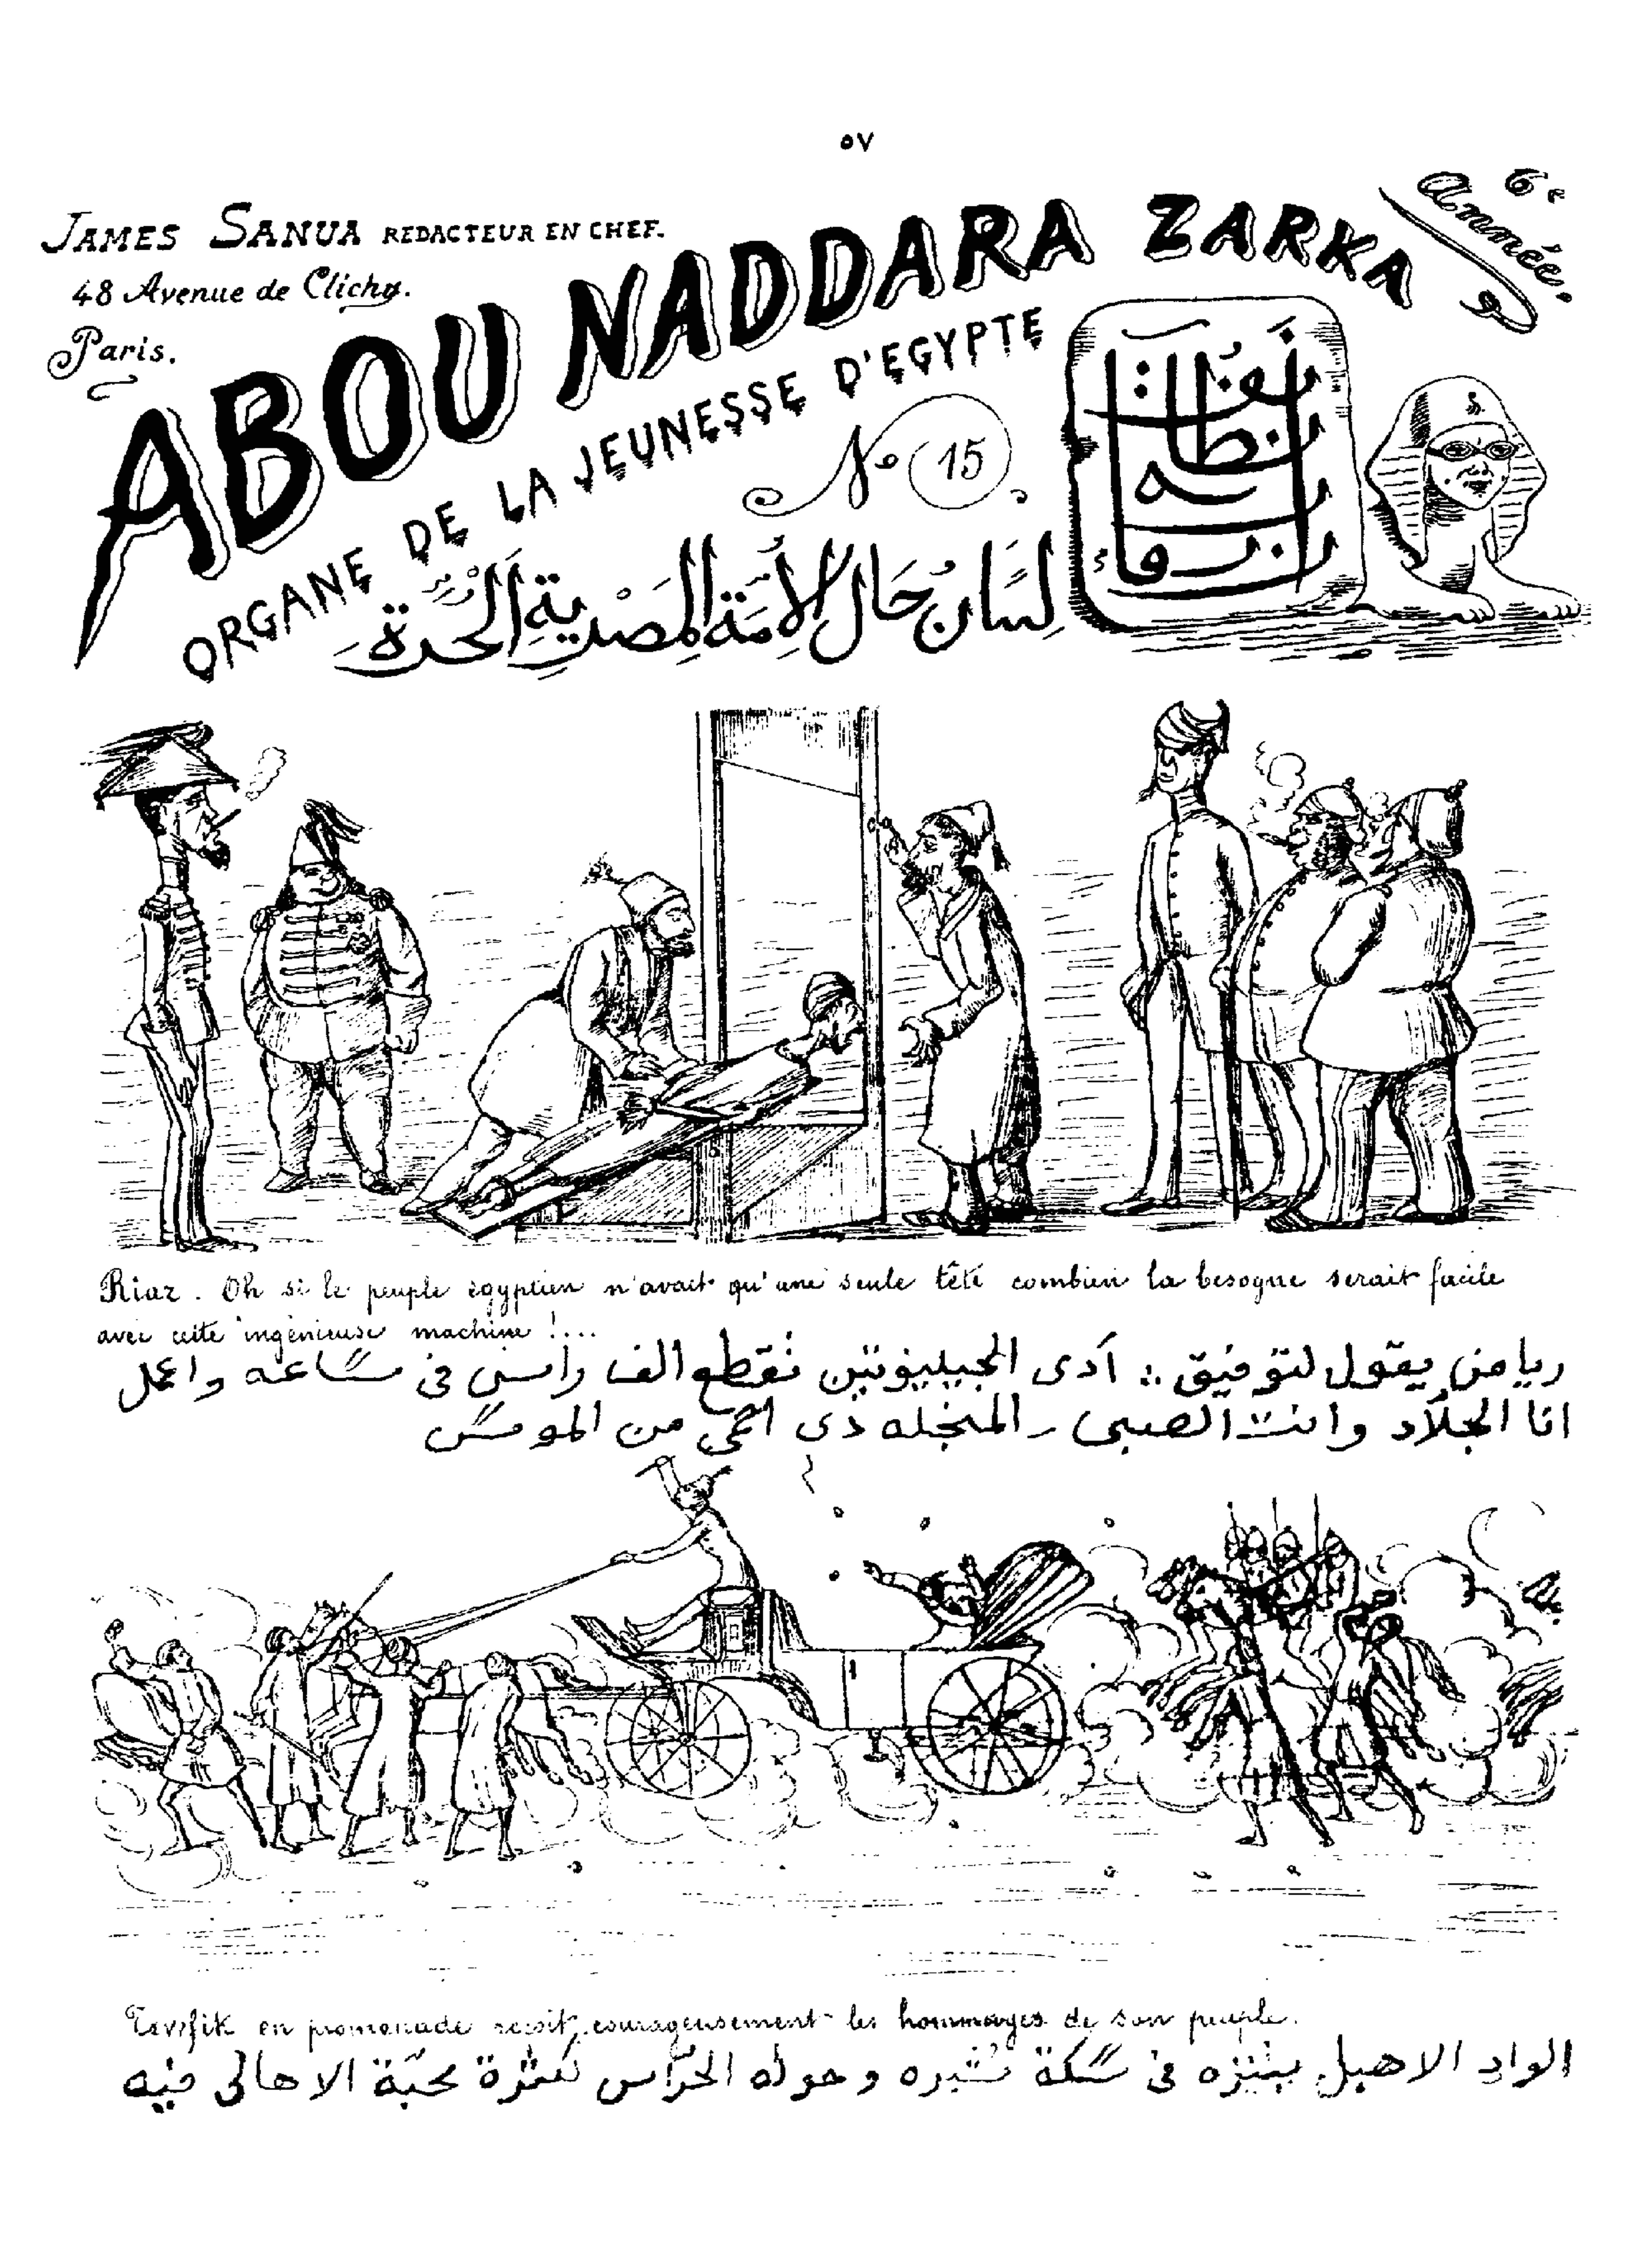 ٥٧
JAMES SANUA REDACTEUR EN CHEF.
48 Avenue de Clichy.
Paris.
6e Année.
ABOU NADDARA ZARKA
ORGANE DE LA JEUNESSE D'EGYPTE
No 15
لِسَان حَال الأُمَّة المَصْرِية الحُرَّة
Riaz. Oh si le peuple égyptien n'avait qu'une seule tête combien la besogne serait facile
avec cette ingénieuse machine !...
رياض يقول لتوفيق : آدى الجيليوتين تقطع الف راس فى ساعه واعمل
انا الجلّاد وانت الصبى المنجله دى احمى من الموس
Tewfik en promenade reçoit courageusement les hommages de son peuple.
الواد الاهبل بيتنزه فى سكة شبره وحوله الحرّاس لكثرة محبّة الاهالى فيه